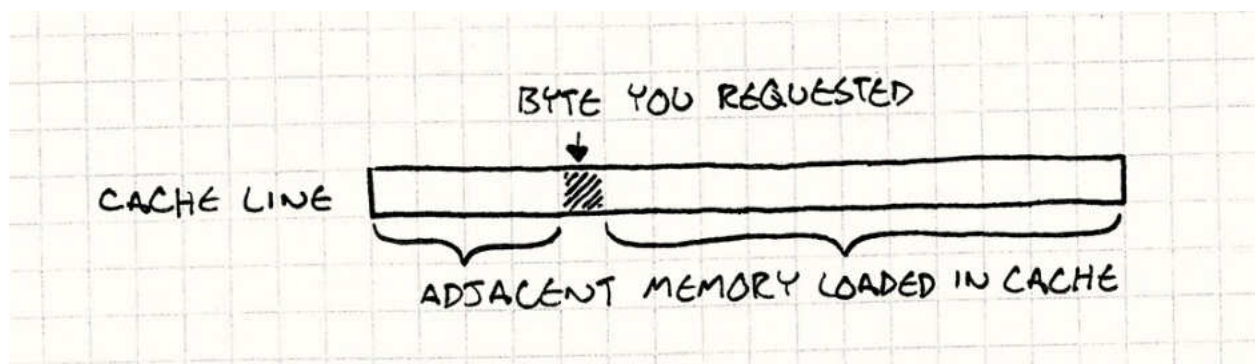 BYTE YOU REQUESTED
CACHE LINE
ADJACENT MEMORY LOADED IN CACHE